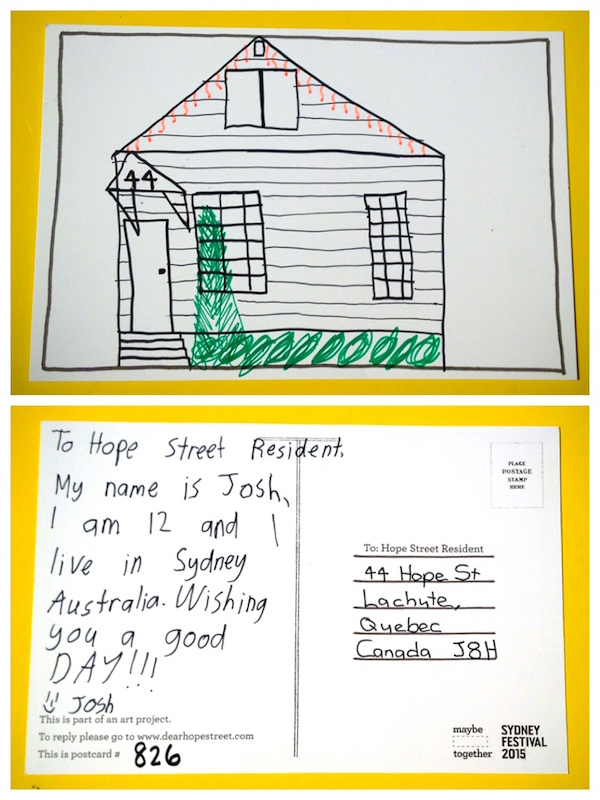 44
To Hope Street Resident,
My name is Josh,
I am 12 and I
live in Sydney
Australia. Wishing
you a good
DAY!!!
Josh
This is part of an art project.
To reply please go to www.dearhopestreet.com
This is postcard # 826
PLACE
POSTAGE
STAMP
HERE
To: Hope Street Resident
44 Hope St
Lachute,
Quebec
Canada J8H
maybe
together
SYDNEY
FESTIVAL
2015